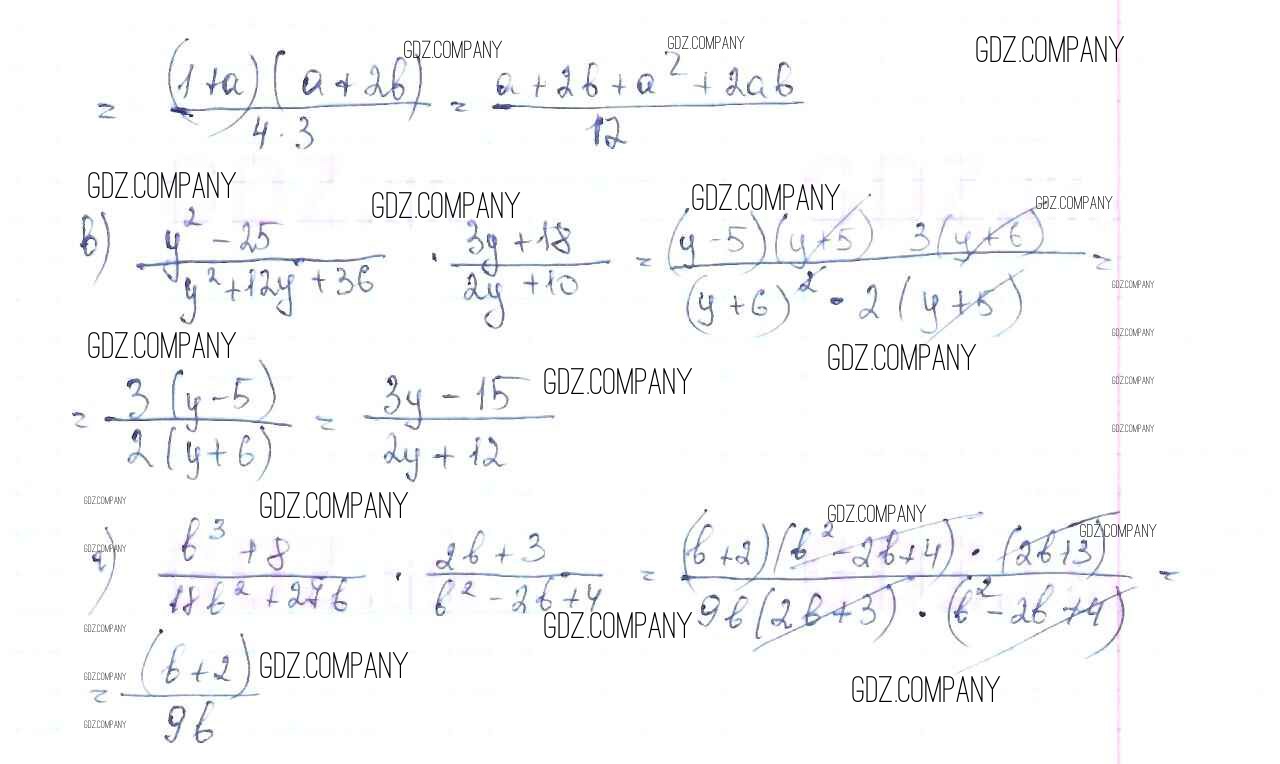 GDZ.COMPANY GDZ.COMPANY GDZ.COMPANY
= (1+a)(a+2b) / 4·3 = a+2b+a²+2ab / 12
GDZ.COMPANY GDZ.COMPANY GDZ.COMPANY GDZ.COMPANY
в) y²-25 / y²+12y+36 · 3y+18 / 2y+10 = (y-5)(y+5) 3(y+6) / (y+6)²·2(y+5) =
GDZ.COMPANY
GDZ.COMPANY
GDZ.COMPANY GDZ.COMPANY
GDZ.COMPANY GDZ.COMPANY
= 3(y-5) / 2(y+6) = 3y-15 / 2y+12
GDZ.COMPANY
GDZ.COMPANY GDZ.COMPANY GDZ.COMPANY GDZ.COMPANY
GDZ.COMPANY
г) b³+8 / 18b²+27b · 2b+3 / b²-2b+4 = (b+2)(b²-2b+4)·(2b+3) / 9b(2b+3)·(b²-2b+4) =
GDZ.COMPANY GDZ.COMPANY
GDZ.COMPANY GDZ.COMPANY GDZ.COMPANY
= (b+2) / 9b
GDZ.COMPANY